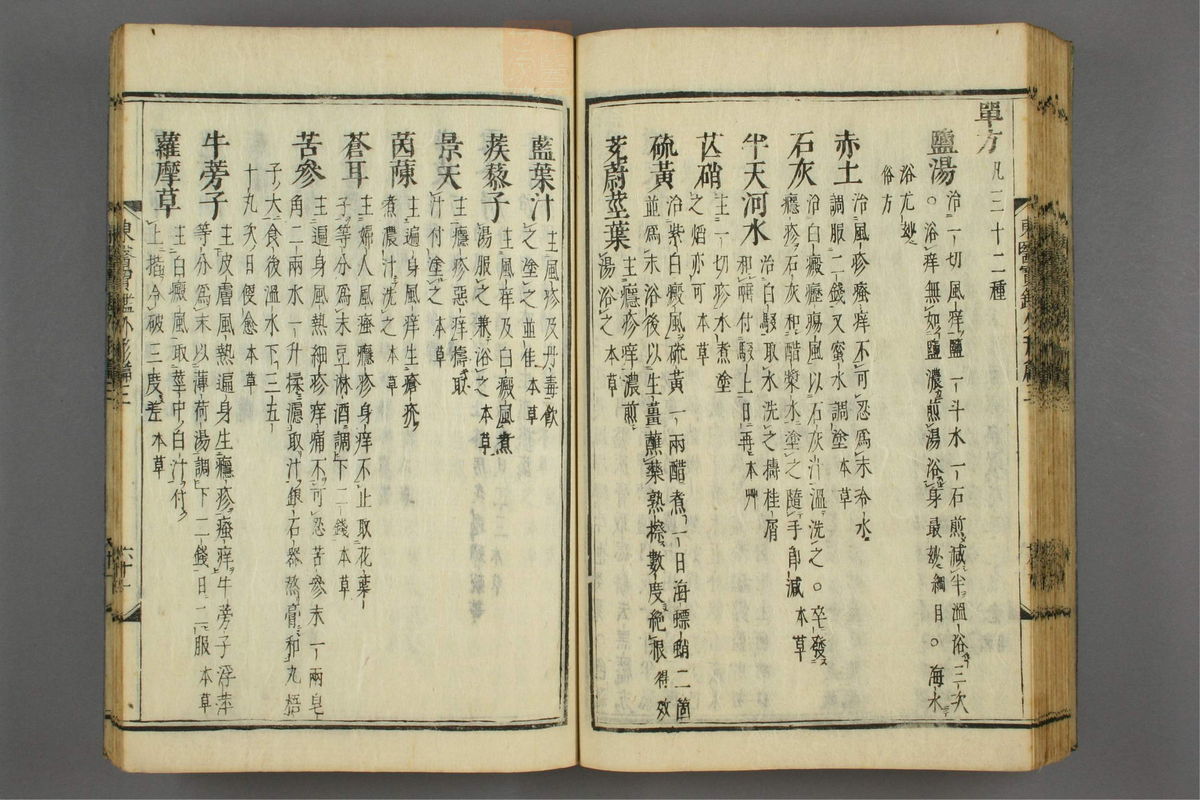 單方 凡三十二種
鹽湯 治一切風痒鹽一斗水一石煎減半溫浴三次
○浴痒無如鹽濃煎湯浴身最妙綱目○海水
浴尤妙
俗方
赤土 治風疹瘙痒不可忍爲末冷水
調服二錢又蜜水調塗本草
石灰 治白癜癧瘍風以石灰汁溫洗之○卒發
癮疹石灰和醋漿水塗之隨手卽減本草
半天河水 治白駁取水洗之擣桂屑
和唾付駁上日再本艸
芒硝 主一切疹水煮塗
之熖亦可本草
硫黃 治紫白癜風硫黃一兩醋煮一日海螵蛸二箇
並爲末浴後以生薑蘸藥熟擦數度絶根得效
茺蔚莖葉 主癮疹痒濃煎
湯浴之本草
藍葉汁 主風疹及丹毒飮
之塗之並佳本草
蒺藜子 主風痒及白癜風煮
湯服之兼浴之本草
景天 主癮疹惡痒擣取
汁付塗之本草
茵蔯 主遍身風痒生瘡疥
煮濃汁洗之本草
蒼耳 主婦人風瘙癮疹身痒不止取花葉
子等分爲末豆淋酒調下二錢本草
苦參 主遍身風熱細疹痒痛不可忍苦參末一兩皂
角二兩水一升揉濾取汁銀石器熬膏和丸梧
子大食後溫水下三五
十丸次日便愈本草
牛蒡子 主皮膚風熱遍身生癮疹瘙痒牛蒡子浮萍
等分爲末以薄荷湯調下二錢日二服本草
蘿摩草 主白癜風取莖中白汁付
上揩令破三度差本草
東醫寶鑑外形篇三
六十一